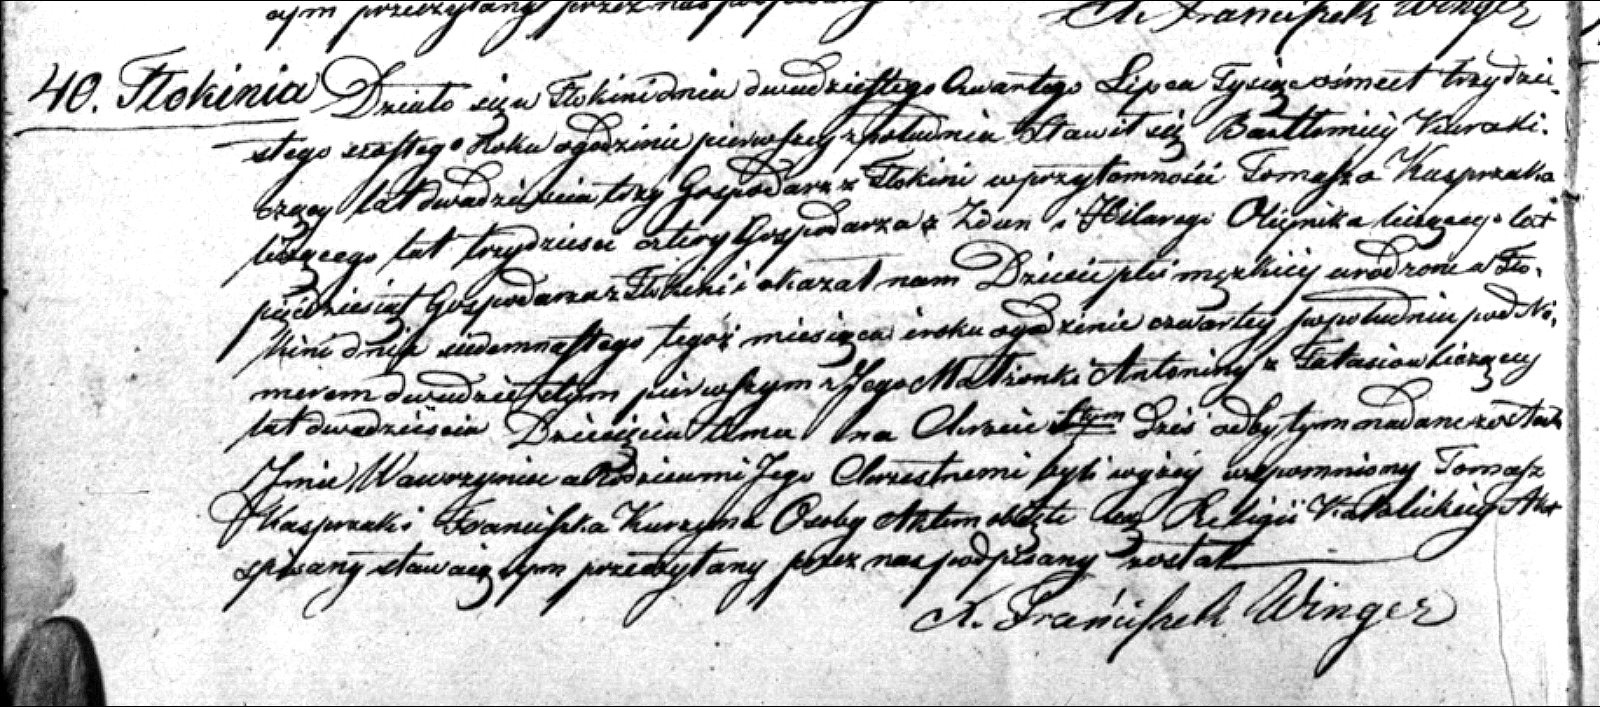 aym przeczytany przez nas podpisany
X. Franciszek Winger
40. Tłokinia Działo się w Tłokini dnia dwudziestego Czwartego Lipca Tysiąc ośmset trzydzie-
stego szostego Roku o godzinie pierwszej z południa Stawił się Bartłomiej Kuraś li-
czący lat dwadzieścia trzy Gospodarz z Tłokini w przytomności Tomasza Kasprzaka
liczącego lat trzydzieści cztery Gospodarza z Zdun i Hilarego Olejnika liczącego lat
pięćdziesiąt Gospodarza z Tłokini i okazał nam Dziecie płci męzkiey urodzone w Tło-
kini dnia siedemnastego tegóż miesiąca i roku o godzinie czwartey popołudniu pod No-
merem dwudziestym pierwszym z Jego Małżonki Antoniny z liczącey
lat dwadzieścia Dziecięciu temu na Chrzcie Stym Dziś odbytym nadane zostało
Jmie Wawrzyniec a Rodzicami Jego Chrzestnemi byli wyżey wspomniony Tomasz
Kasprzak i Franciszka Kurzyna Osoby Aktem objęte są Religii Katolickiey Akt
spisany stawaiącym przeczytany przez nas podpisany został
X. Franciszek Winger